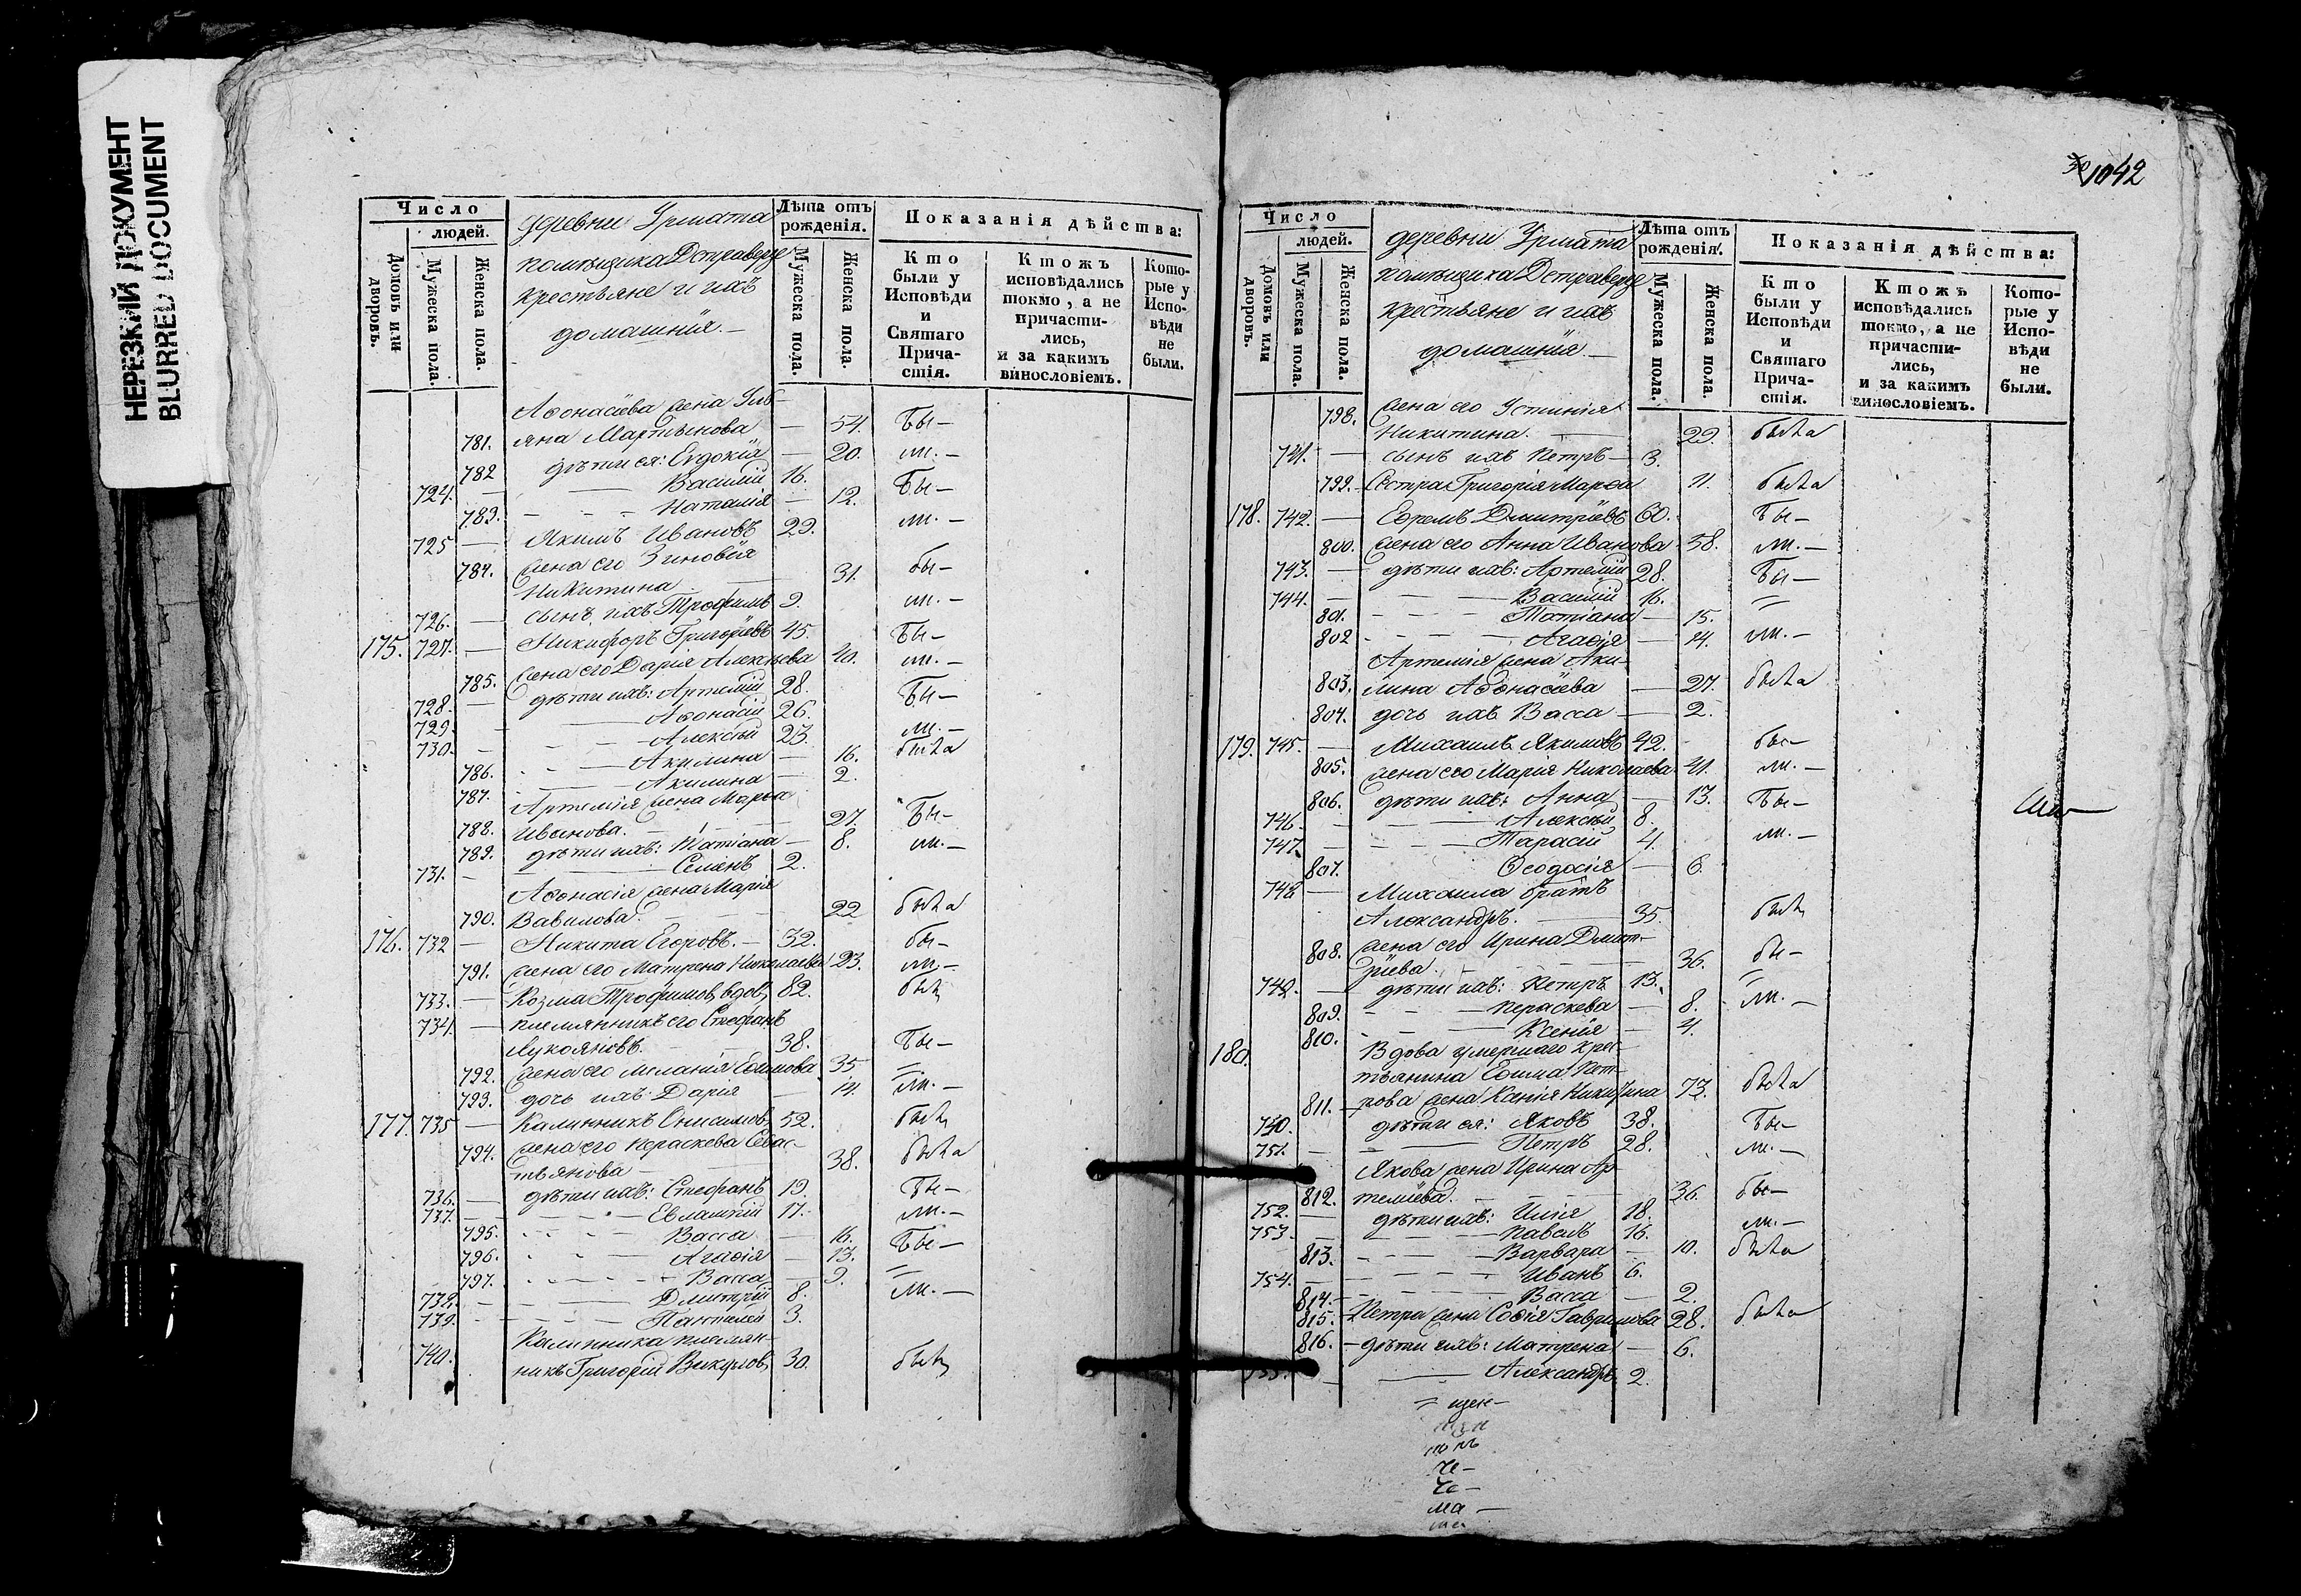 НЕРЕЗКИЙ ДОКУМЕНТ
BLURRED DOCUMENT
Число
людей.
Домовъ или дворовъ.
Мужеска пола.
Женска пола.
деревни Урмата
помѣщика Дстраверзе
крестьяне и ихъ
домашнія. —
Лѣта отъ рожденія.
Мужеска пола.
Женска пола.
Показанія дѣйства:
Кто были у Исповѣди и Святаго Причастія.
Ктожъ исповѣдались токмо, а не причастились, и за какимъ винословіемъ.
Которые у Исповѣди не были.
Аѳонасіева жена Улі-
781. яна Мартынова — 54. Бы-
782 дѣти ея: Евдокія — 20. ли. —
724. — Василій 16. Бы-
783. — Наталія — 12.
725 — Якимъ Ивановъ 29. ли. —
784. жена его Зиновія
Никитина 31. бы-
726. — сынъ ихъ Трофимъ 9. ли. —
175. 727. — Никифоръ Григорьевъ 45. Бы-
785. жена его Дарія Алексѣева 40. ли. —
728. — дѣти ихъ: Артемій 28. Бы-
729. — Аѳонасій 26.
730. — Алексѣй 23. ли. —
786. — Акилина — 16. была
787. — Акилина — 2.
Артемія жена Марѳа
788. Иванова. — 27. Бы-
789. дѣти ихъ: Татіана — 8. ли. —
731. — Семенъ 2.
Аѳонасія жена Марія
790. Вавилова. — 22 была
176. 732 — Никита Егоровъ. — 32. бы-
791. жена его Матрена Николаева 23. ли. —
733. — Козма Трофимов, вдов, 82. былъ
734. — племянникъ его Стефанъ
Лукояновъ. — 38. Бы-
792. жена его Меланія Ефимова 35 =
793. дочь ихъ Дарія — 14. ли. —
177. 735 — Калинникъ Онисимов, 52. былъ
794. жена его Параскева Севас-
тьянова — 38. была
736. — дѣти ихъ: Стефанъ 19. Бы-
737. — Евлампій 17. ли. —
795. — Васса — 16.
796. — Агафія — 13. Бы-
797. — Васса — 9. =
738. — Дмитрій 8. ли. —
739. — Пантелей 3.
Калинника племян-
740. никъ Григорій Викулов, 30. былъ
1042
Число
людей.
Домовъ или дворовъ.
Мужеска пола.
Женска пола.
деревни Урмата
помѣщика Дстраверзе
крестьяне и ихъ
домашнія. —
Лѣта отъ рожденія.
Мужеска пола.
Женска пола
Показанія дѣйства:
Кто были у Исповѣди и Святаго Причастія.
Ктожъ исповѣдались токмо, а не причастились, и за какимъ винословіемъ.
Которые у Исповѣди не были.
798. жена его Устинія
Никитина. — 29. была
741. — сынъ ихъ Петръ — 3.
799. Сестра Григорія Марѳа 11. была
178. 742. — Ефремъ Дмитріевъ 60. Бы-
800. жена его Анна Иванова 58. ли. —
743. — дѣти ихъ: Артемій 28. Бы-
744. — Василій 16. =
801. — Татіана — 15.
802 — Агафія — 14. ли. —
Артемія жена Аки-
803. лина Аѳонасіева — 27. была
804. дочь ихъ Васса — 2.
179. 745. — Михаилъ Якимовъ 42. бы-
805. жена его Марія Николаева 41. ли. —
806. дѣти ихъ: Анна — 13. Бы-
746. — Алексѣй 8.
747. — Тарасій 4. ли. —
807. Ѳеодосія — 6.
748 — Михаила братъ
Александръ. — 35. былъ
808. жена его Ирина Дмит-
ріева. — 36. бы-
749. — дѣти ихъ: Петръ 13. =
809. — Параскева — 8. ли. —
810. — Ксенія — 4.
180. Вдова умершаго крес-
тьянина Ефима Пет-
811. рова жена Ксенія Никитина 73. была
750. дѣти ея: Яковъ 38. Бы-
751. — Петръ 28. ли. —
Якова жена Ирина Ар-
812. теміева. — 36. бы-
752. — дѣти ихъ: Илія 18.
753. — Павелъ 16. ли. —
813. — Варвара — 10. была
754. — Иванъ 6.
814. — Васса — 2.
815. — Петра жена Софія Гаврилова 28. была
816. — дѣти ихъ: Матрена — 6.
755. — Александръ 2.